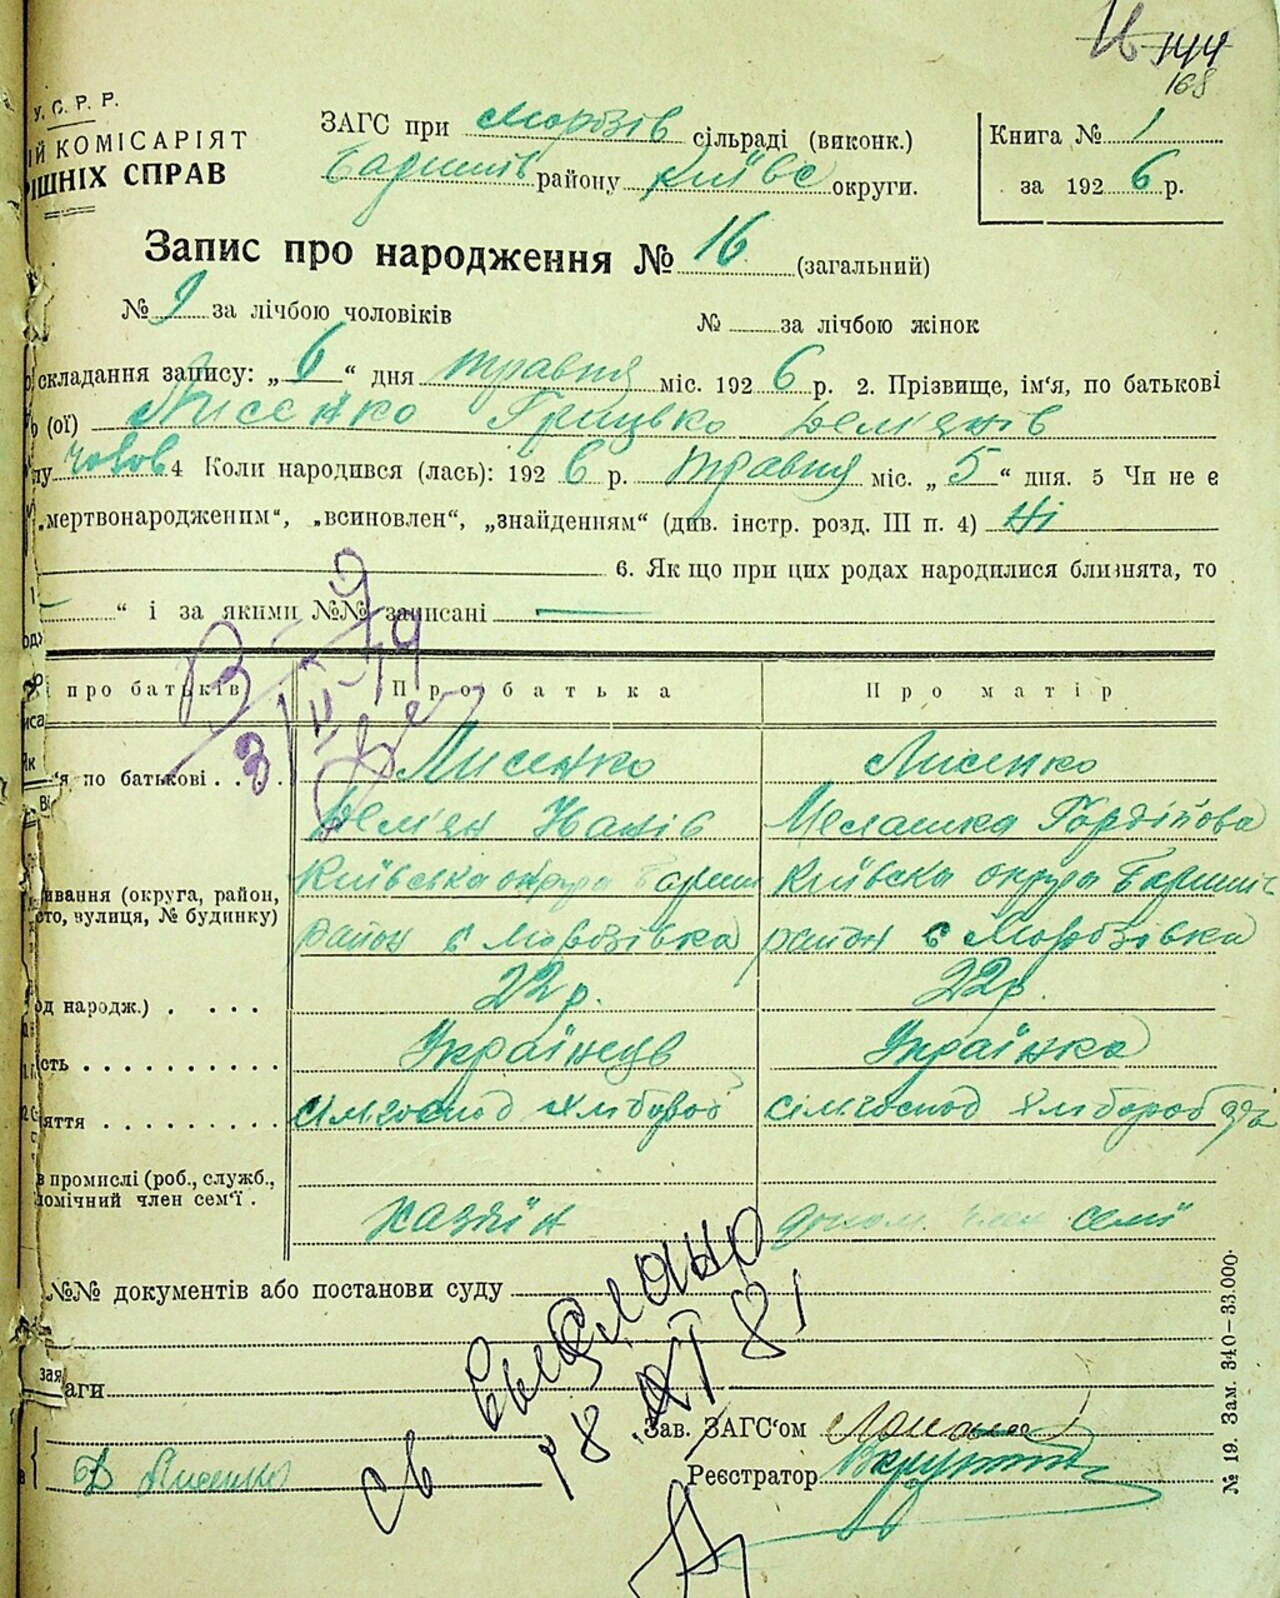 144
168
У.С.Р.Р.
ІЙ КОМІСАРІЯТ
ІШНІХ СПРАВ
ЗАГС при Морозів сільраді (виконк.)
Баришів району Київс округи.
Книга № 1
за 1926 р.
Запис про народження № 16 (загальний)
№ 9 за лічбою чоловіків
№ за лічбою жінок
складання запису: „6“ дня травня міс. 1926 р. 2. Прізвище, ім‘я, по батькові
(ої) Лисенко Грицько Дем'янів
лу чолов 4 Коли народився (лась): 1926 р. травня міс. „5“ дня. 5 Чи не є
„мертвонародженим“, „всиновлен“, „знайденням“ (див. інстр. розд. III п. 4) Ні
6. Якщо при цих родах народилися близнята, то
“ і за якими №№ записані
і про батьків
Про батька
Про матір
‘я по батькові . . . .
Лисенко
Лисенко
Дем'ян Іванів
Мелашка Гордійова
ивання (округа, район,
сто, вулиця, № будинку)
Київська округа Бариш
Київска округа Баришів
район с Морозівка
район с Морозівка
од народж.) . . . .
22 р.
22 р.
ість . . . . . . . . . .
Українець
Українка
яття . . . . . . . . .
сільгоспод хлібороб
сільгоспод хлібороб
в промислі (роб., служб.,
омічний член сем‘ї .
хазяїн
допом. член семї
№№ документів або постанови суду
заяв
аги
св выслано
18 XI 81
Зав. ЗАГС‘ом
Реєстратор
Д Лисенко
№ 19. Зам. 340—33.000.